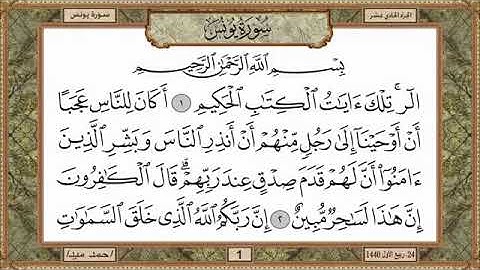 سورة يونس
سورة يونس
الجزء الحادي عشر
بِسْمِ اللَّهِ الرَّحْمَٰنِ الرَّحِيمِ
الٓر ۚ تِلْكَ ءَايَٰتُ الْكِتَٰبِ الْحَكِيمِ ١ أَكَانَ لِلنَّاسِ عَجَبًا
أَنْ أَوْحَيْنَآ إِلَىٰ رَجُلٍ مِّنْهُمْ أَنْ أَنذِرِ النَّاسَ وَبَشِّرِ الَّذِينَ
ءَامَنُوٓا۟ أَنَّ لَهُمْ قَدَمَ صِدْقٍ عِندَ رَبِّهِمْ ۗ قَالَ الْكَٰفِرُونَ
إِنَّ هَٰذَا لَسَٰحِرٌ مُّبِينٌ ٢ إِنَّ رَبَّكُمُ اللَّهُ الَّذِى خَلَقَ السَّمَٰوَٰتِ
/حمد مليد/
1
24- ربيع الأول 1440